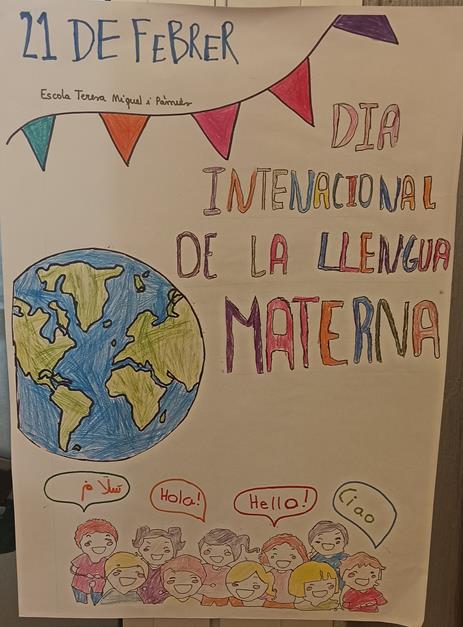 21 DE FEBRER
Escola Teresa Miquel i Pàmies
DIA
INTENACIONAL
DE LA LLENGUA
MATERNA
سلام
Hola!
Hello!
Ciao